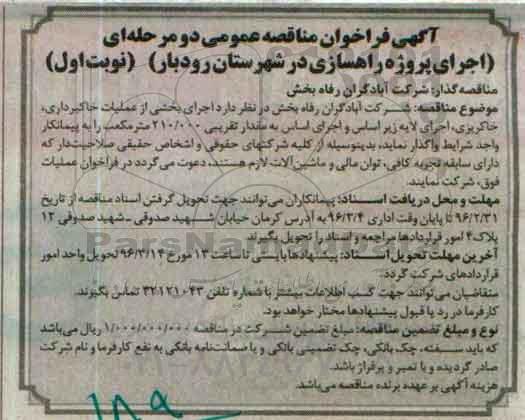 آگهی فراخوان مناقصه عمومی دو مرحله‌ای
(اجرای پروژه راهسازی در شهرستان رودبار) (نوبت اول)
مناقصه گذار: شرکت آبادگران رفاه بخش
موضوع مناقصه: شرکت آبادگران رفاه بخش در نظر دارد اجرای بخشی از عملیات خاکبرداری،
خاکریزی، اجرای لایه زیر اساس و اجرای اساس به مقدار تقریبی ۲۱۰/۰۰۰ مترمکعب را به پیمانکار
واجد شرایط واگذار نماید، بدینوسیله از کلیه شرکتهای حقوقی و اشخاص حقیقی صلاحیت‌دار که
دارای سابقه تجربه کافی، توان مالی و ماشین آلات لازم هستند، دعوت می‌گردد در فراخوان عملیات
فوق، شرکت نمایند.
مهلت و محل دریافت اسناد: پیمانکاران می‌توانند جهت تحویل گرفتن اسناد مناقصه از تاریخ
۹۶/۲/۳۱ تا پایان وقت اداری ۹۶/۳/۴ به آدرس کرمان خیابان شهید صدوقی ـ شهید صدوقی ۱۲
پلاک۴ امور قراردادها مراجعه و اسناد را تحویل بگیرند.
آخرین مهلت تحویل اسناد: پیشنهادها بایستی تا ساعت ۱۳ مورخ ۹۶/۳/۱۴ تحویل واحد امور
قراردادهای شرکت گردد.
متقاضیان می‌توانند جهت کسب اطلاعات بیشتر با شماره تلفن ۳۲۱۲۱۰۴۳ تماس بگیرند.
کارفرما در رد یا قبول پیشنهادها مختار خواهد بود.
نوع و مبلغ تضمین مناقصه: مبلغ تضمین شرکت در مناقصه ۱/۰۰۰/۰۰۰/۰۰۰ ریال می‌باشد
که باید سفته، چک بانکی، چک تضمینی بانکی و یا ضمانت‌نامه بانکی به نفع کارفرما و نام شرکت
صادر گردیده و با تمبر و پرفراژ باشد.
هزینه آگهی بر عهده برنده مناقصه می‌باشد.